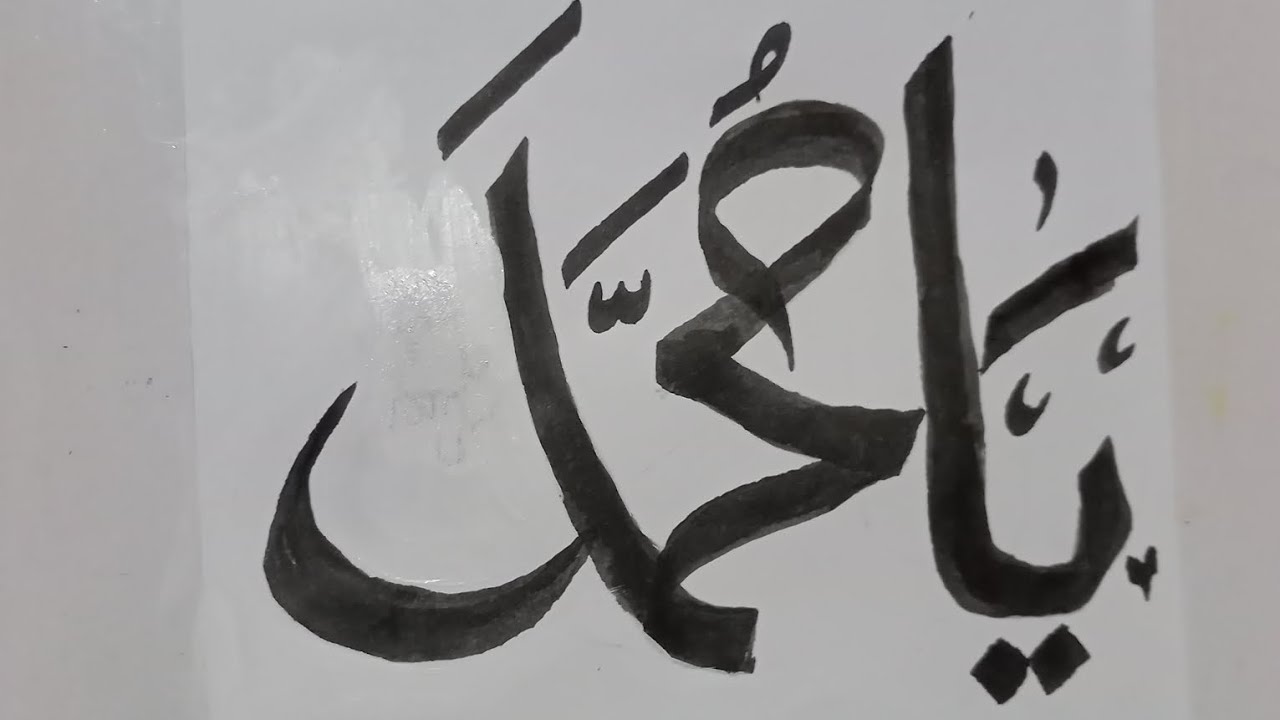 يَا مُحَمَّدَ